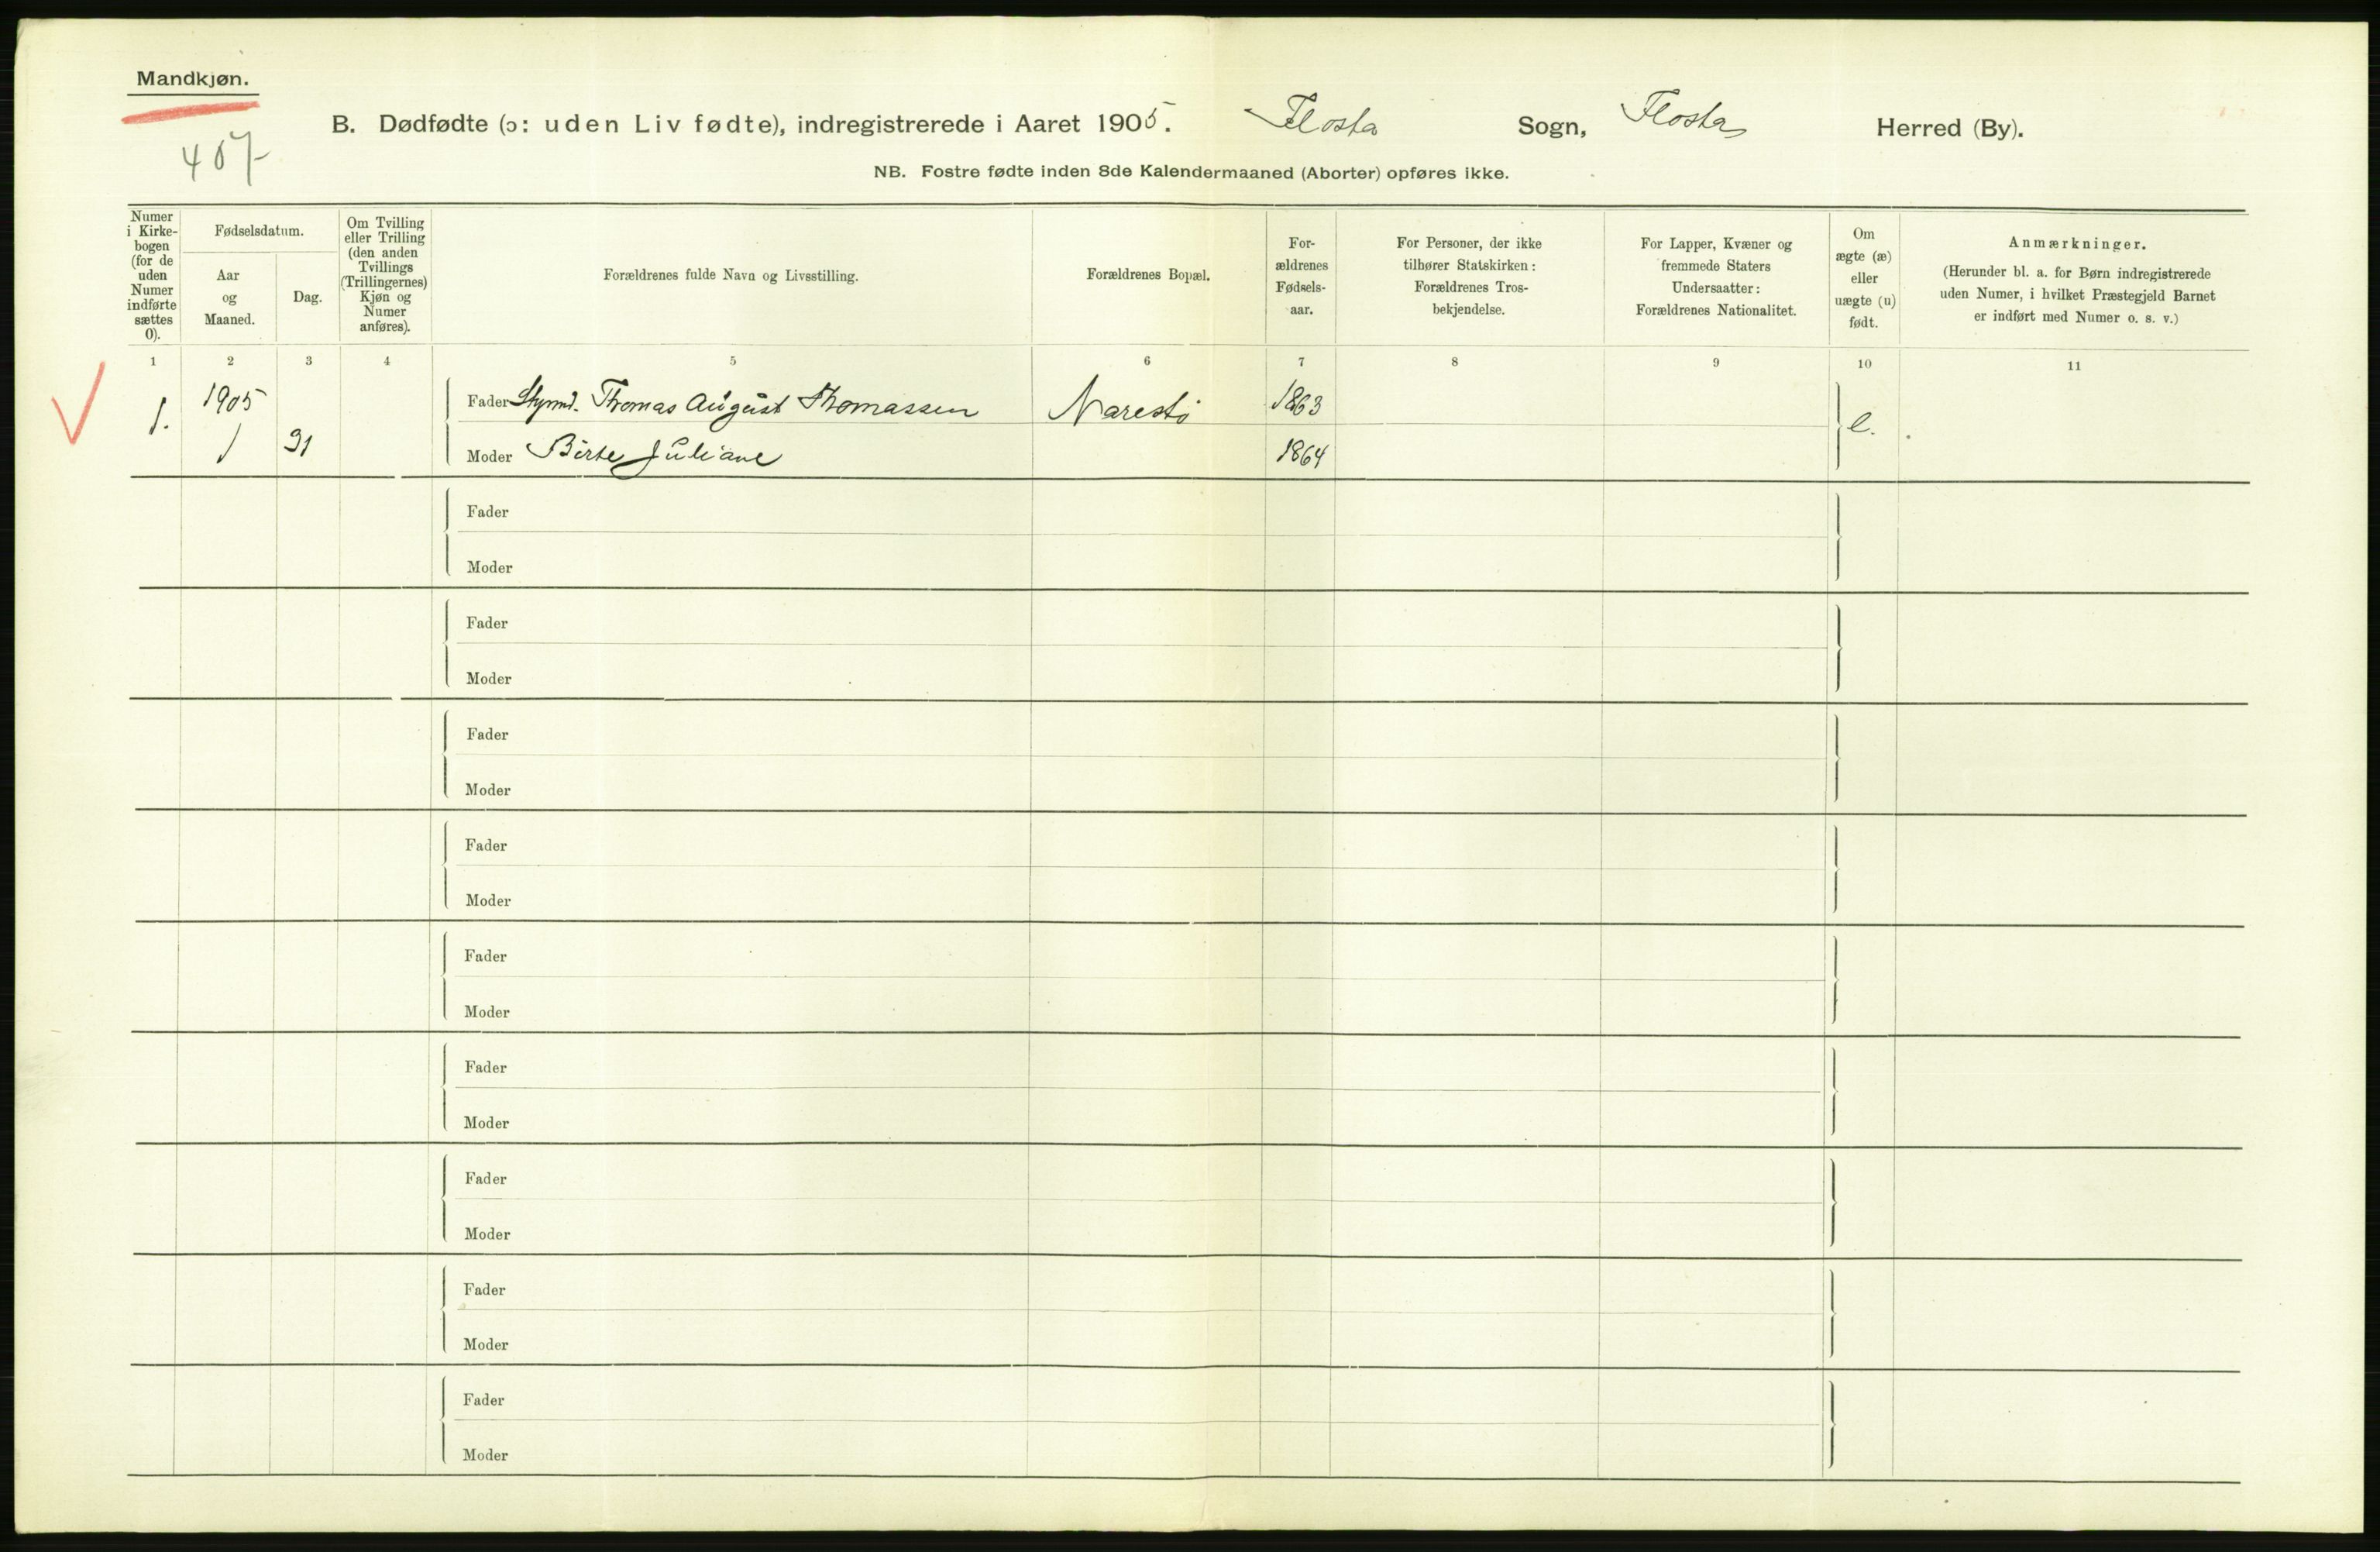 Mandkjøn.
407
B. Dødfødte (ɔ: uden Liv fødte), indregistrerede i Aaret 1905. Flosta Sogn, Flosta Herred (By).
NB. Fostre fødte inden 8de Kalendermaaned (Aborter) opføres ikke.
Numer
i Kirke-
bogen
(for de
uden
Numer
indførte
sættes
0).
Fødselsdatum.
Aar
og
Maaned.
Dag.
Om Tvilling
eller Trilling
(den anden
Tvillings
(Trillingernes)
Kjøn og
Numer
anføres).
Forældrenes fulde Navn og Livsstilling.
Forældrenes Bopæl.
For-
ældrenes
Fødsels-
aar.
For Personer, der ikke
tilhører Statskirken:
Forældrenes Tros-
bekjendelse.
For Lapper, Kvæner og
fremmede Staters
Undersaatter:
Forældrenes Nationalitet.
Om
ægte (æ)
eller
uægte (u)
født.
Anmærkninger.
(Herunder bl. a. for Børn indregistrerede
uden Numer, i hvilket Præstegjeld Barnet
er indført med Numer o. s. v.)
1 2 3 4 5 6 7 8 9 10 11
1. 1905 Fader Styrmd. Thomas August Thomassen Narestø 1863 e.
1 31 Moder Birte Juliane 1864
Fader
Moder
Fader
Moder
Fader
Moder
Fader
Moder
Fader
Moder
Fader
Moder
Fader
Moder
Fader
Moder
Fader
Moder